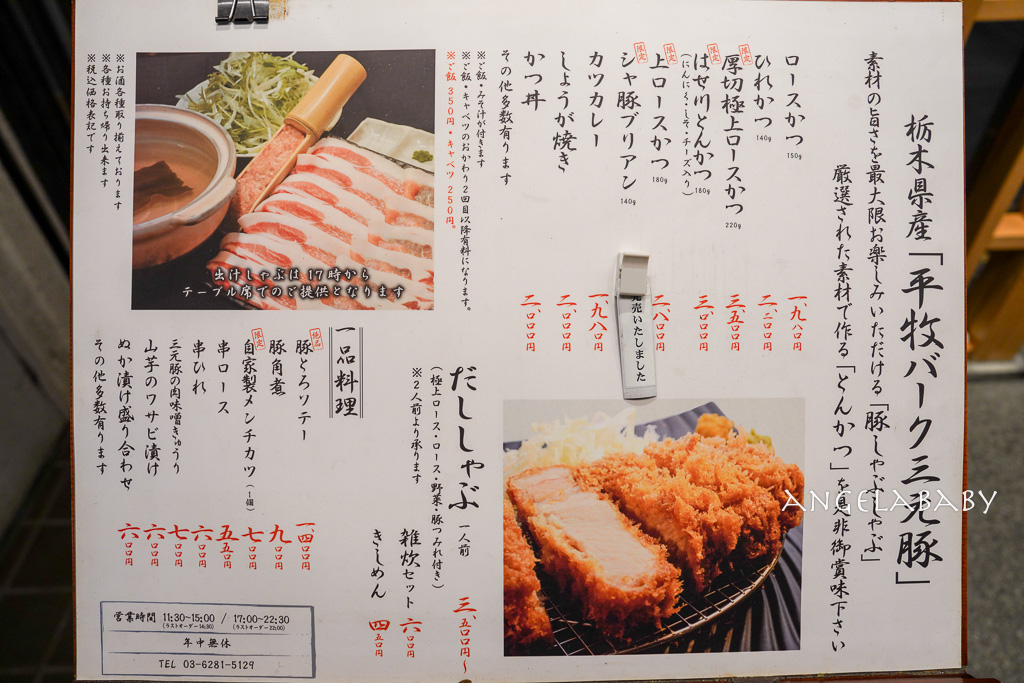 栃木県産「平牧バーク三元豚」
素材の旨さを最大限お楽しみいただける「豚しゃぶしゃぶ」
厳選された素材で作る「とんかつ」を是非御賞味下さい
ロースかつ 150g 一、九八〇円
ひれかつ 140g 二、二〇〇円
限定 厚切極上ロースかつ 220g 三、五〇〇円
限定 はせ川とんかつ 180g 三、〇〇〇円
(にんにく・しそ・チーズ入り)
限定 上ロースかつ 180g 二、八〇〇円
限定 シャ豚ブリアン 140g
完売いたしました
カツカレー 一、九八〇円
しょうが焼き 二、〇〇〇円
かつ丼 二、〇〇〇円
その他多数有ります
※ご飯・みそ汁が付きます
※ご飯・キャベツのおかわり2回目以降有料になります。
※ご飯 350円・キャベツ 250円。
出汁しゃぶは17時から
テーブル席でのご提供となります
※お酒各種取り揃えております
※各種お持ち帰り出来ます
※税込価格表記です
だししゃぶ 一人前 三、五〇〇円〜
(極上ロース・ロース・野菜・豚つみれ付き)
※2人前より承ります
雑炊セット 六〇〇円
きしめん 四五〇円
一品料理
豚とろソテー 一四〇〇円
豚角煮 九〇〇円
限定 自家製メンチカツ(1個) 七〇〇円
串ロース 五五〇円
串ひれ 六〇〇円
三元豚の肉味噌きゅうり 七〇〇円
山芋のワサビ漬け 六〇〇円
ぬか漬け盛り合わせ 六〇〇円
その他多数有ります
営業時間 11:30~15:00 / 17:00~22:30
(ラストオーダー14:30) (ラストオーダー22:00)
年中無休
TEL 03-6281-5129
ANGELABABY